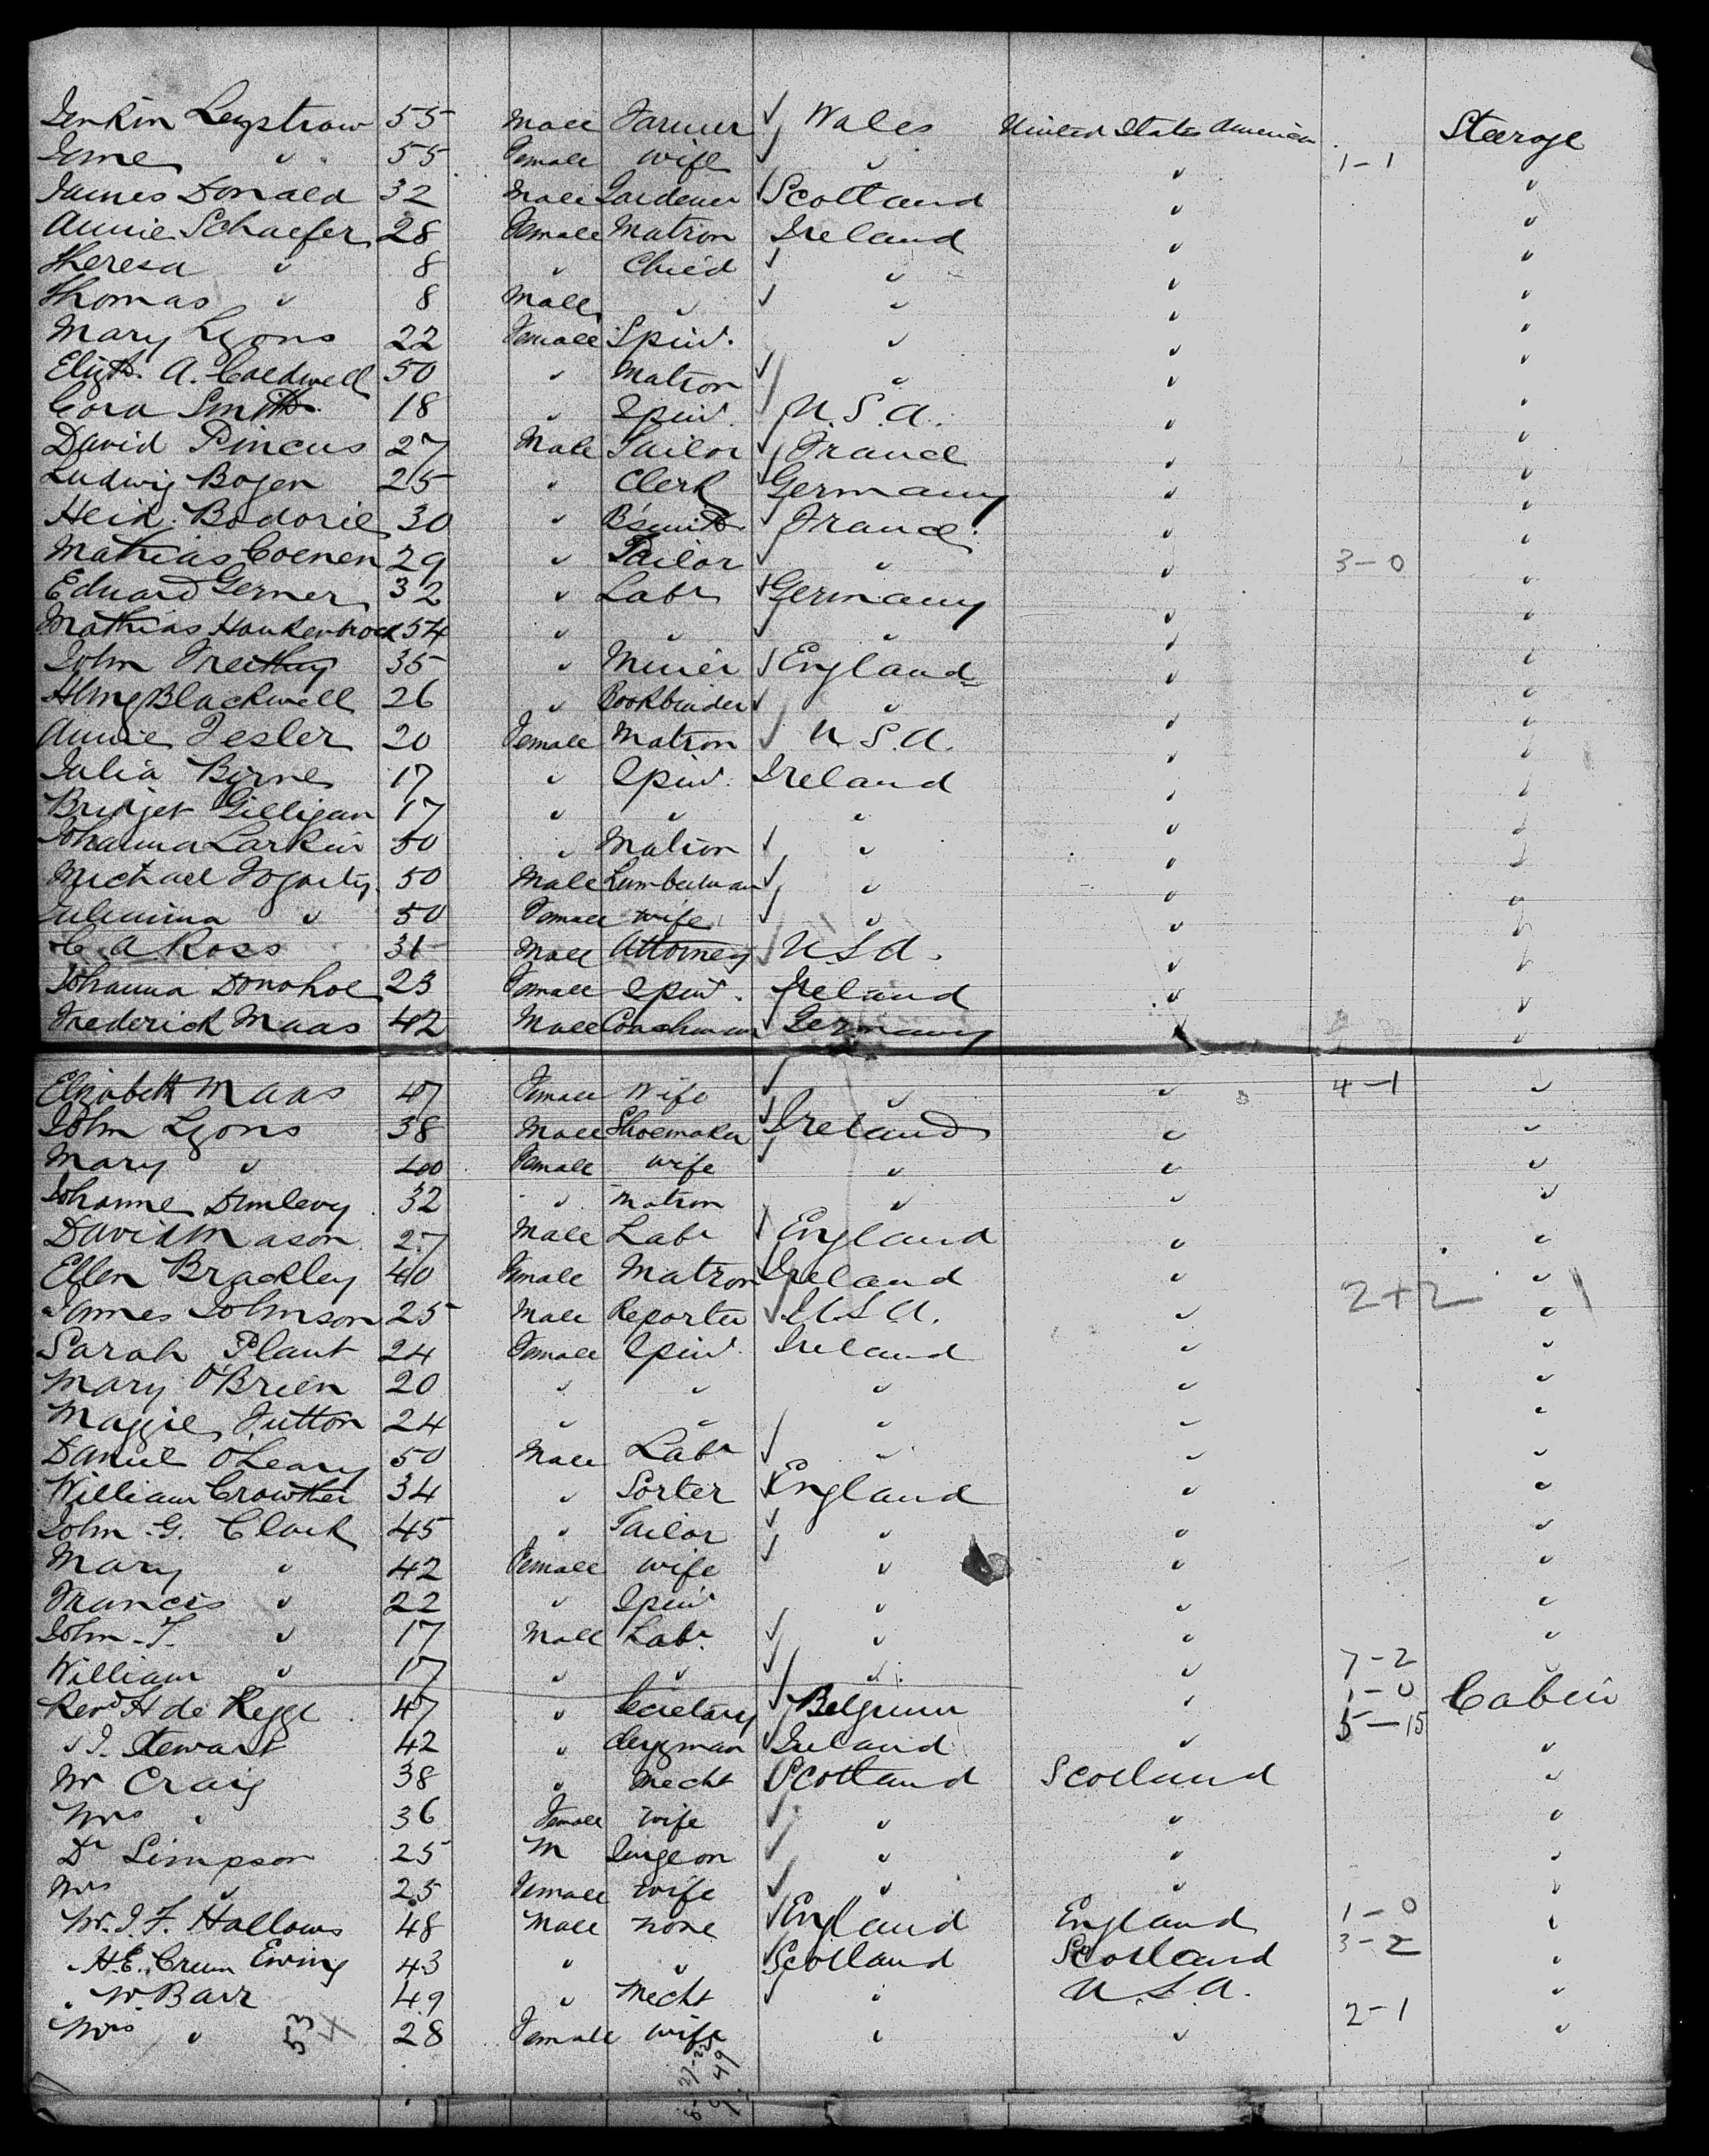 Jenkin Leystrow 55 Male Farmer Wales United States America Steerage
Jane " 55 Female Wife " " 1-1 "
James Donald 32 Male Gardener Scotland " "
Annie Schaefer 28 Female Matron Ireland " "
Theresa " 8 " Child " " "
Thomas " 8 Male " " " "
Mary Lyons 22 Female Spinr. " " "
Elizth. A. Caldwell 50 " Matron " " "
Cora Smith 18 " Spinr. U.S.A. " "
David Pincus 27 Male Tailor France " "
Ludwig Bogen 25 " Clerk Germany " "
Heid. Bodoric 30 " B'smith France " "
Mathias Coenen 29 " Tailor " " 3-0 "
Eduard Gerner 32 " Labr Germany " "
Mathias Haukenbrock 54 " " " " "
John Treithay 35 " Miner England " "
Blackwell 26 " Bookbinder " " "
Annie Fesler 20 Female Matron U.S.A. " "
Julia Birne 17 " Spinr. Ireland " "
Bridget Gilligan 17 " " " " "
Johanna Larkin 50 " Matron " " "
Michael Fogarty 50 Male Lumberman " " "
" 50 Female Wife " " "
C A Ross 31 Male Attorney U.S.A. " "
Johanna Donohoe 23 Female Spinr. Ireland " "
Frederick Maas 42 Male Coachman Germany " "
Elizabeth Maas 47 Female Wife " " 4-1 "
John Lyons 38 Male Shoemaker Ireland " "
Mary " 40 Female Wife " " "
Johanne Dunlevy 32 " Matron " " "
David Mason 27 Male Labr England " "
Ellen Brackley 40 Female Matron Ireland " "
James Johnson 25 Male Reporter U.S.A. " 2+2 "
Sarah Plant 24 Female Spinr. Ireland " "
Mary O'Brien 20 " " " " "
Maggie Futton 24 " " " " "
Daniel O'Leary 50 Male Labr " " "
William Crowther 34 " Sorter England " "
John G. Clark 45 " Tailor " " "
Mary " 42 Female Wife " " "
Francis " 22 " Spinr " " "
John T. " 17 Male Labr. " " "
William " 17 " " " " 7-2 "
Revd H de Regge 47 " Secretary Belgium " 1-0 Cabin
" J. Stewart 42 " Clergyman Ireland " 5-15 "
Mr Craig 38 " Mecht Scotland Scotland "
Mrs " 36 Female Wife " " "
Dr Simpson 25 M Surgeon " " "
Mrs " 25 Female Wife " " "
Mr. J. F. Hallows 48 Male None England England 1-0 "
" H.E. Crum Ewing 43 " " Scotland Scotland 3-2 "
" W. Barr 49 " Mecht " U.S.A. "
Mrs " 28 Female Wife " " 2-1 "
53
4
49